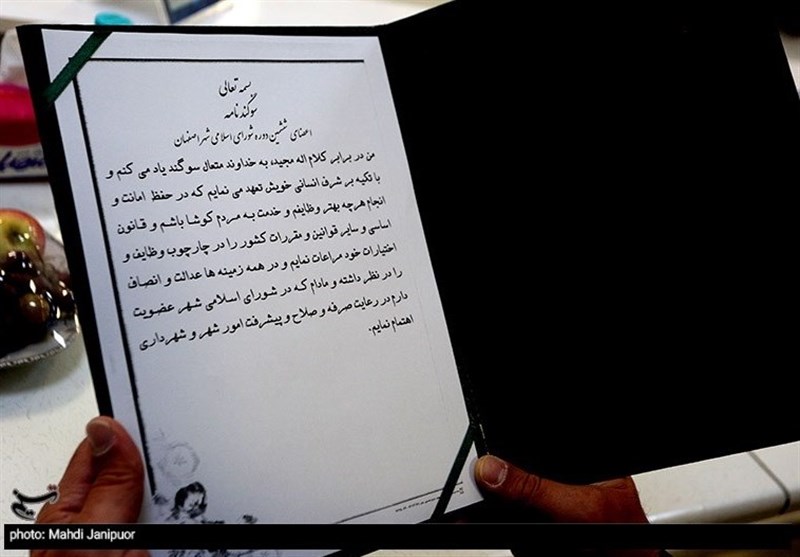 بسمه تعالی
سوگند نامه
اعضای ششمین دوره شورای اسلامی شهر اصفهان
من در برابر کلام اله مجید، به خداوند متعال سوگند یاد می کنم و
با تکیه بر شرف انسانی خویش تعهد می نمایم که در حفظ امانت و
انجام هرچه بهتر وظایفم و خدمت به مردم کوشا باشم و قانون
اساسی و سایر قوانین و مقررات کشور را در چارچوب وظایف و
اختیارات خود مراعات نمایم و در همه زمینه ها عدالت و انصاف
را در نظر داشته و مادام که در شورای اسلامی شهر عضویت
دارم در رعایت صرفه و صلاح و پیشرفت امور شهر و شهرداری
اهتمام نمایم.
تسنیم
photo: Mahdi Janipuor